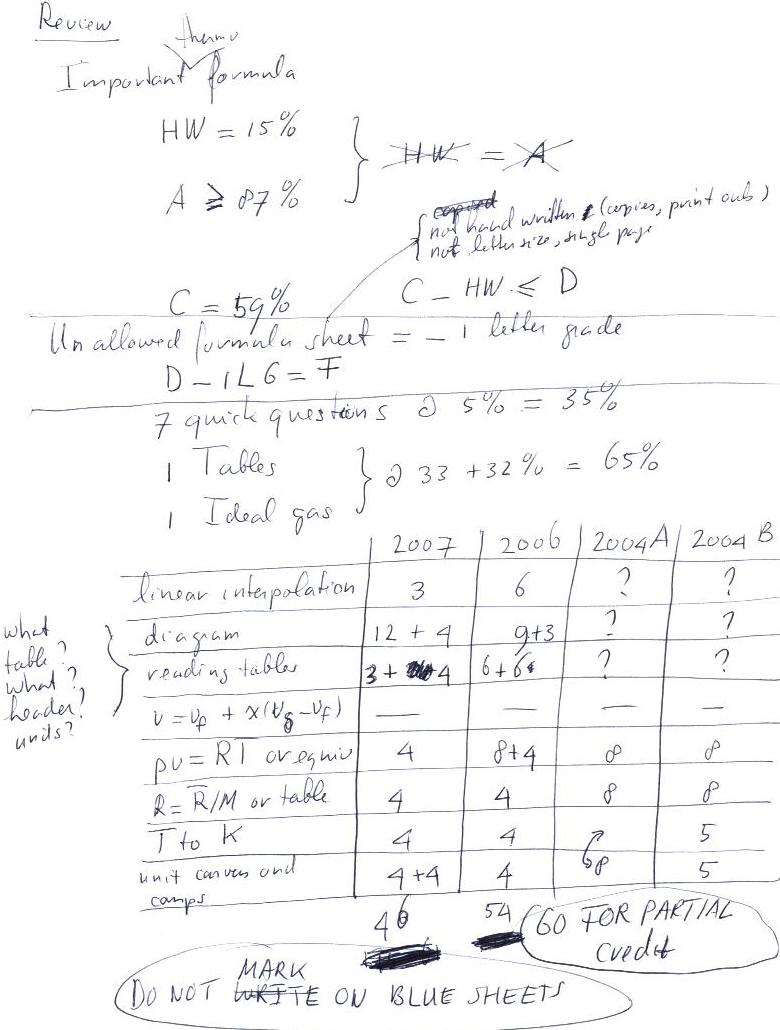 Review
thermo
Important formula
HW = 15%
A ≥ 87%
HW = A
not hand written (copies, print outs)
not letter size, single page
C = 59%
C - HW ≤ D
Un allowed formula sheet = - 1 letter grade
D - 1LG = F
7 quick questions @ 5% = 35%
1 Tables
1 Ideal gas
@ 33 + 32% = 65%
2007 2006 2004A 2004B
linear interpolation 3 6 ? ?
diagram 12 + 4 9+3 ? ?
reading tables 3 + 4 6+6 ? ?
v = vf + x(vg - vf) — — — —
pv = RT or equiv 4 8+4 8 8
R = R̅/M or table 4 4 8 8
T to K 4 4 5
unit convers and 4 +4 4 5
comps
what
table?
what
header?
units?
46 54
GO FOR PARTIAL
credit
MARK
DO NOT WRITE ON BLUE SHEETS